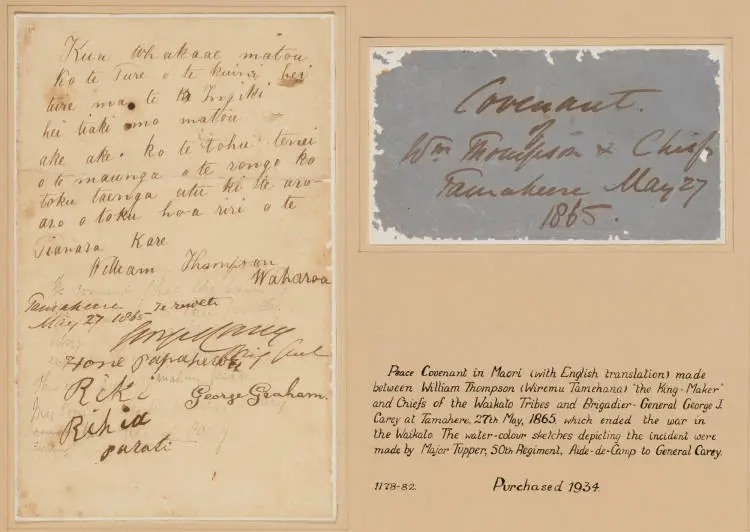 Kua whakaae matou
ko te Ture o te kuini hei
ture ma te Ingiki
hei tiaki mo matou
ake ake. ko te tohu tenei
o te maunga o te rongo ko
toku taenga atu ki te aro-
aro o toku hoa riri o te
Tianara Kare
William Thompson
Waharoa
Tamahere Te rewiti
May 27 1865
Hone papahewa
Riki
George Graham.
Rihia
parati
Covenant.
of
Wm Thompson & Chiefs
Tamaheere May 27
1865.
Peace Covenant in Maori (with English translation) made
between William Thompson (Wiremu Tamehana) "the King-Maker"
and Chiefs of the Waikato Tribes and Brigadier-General George J.
Carey at Tamahere, 27th May, 1865, which ended the war in
the Waikato. The water-colour sketches depicting the incident were
made by Major Tupper, 50th Regiment, Aide-de-Camp to General Carey.
1178-82. Purchased 1934.